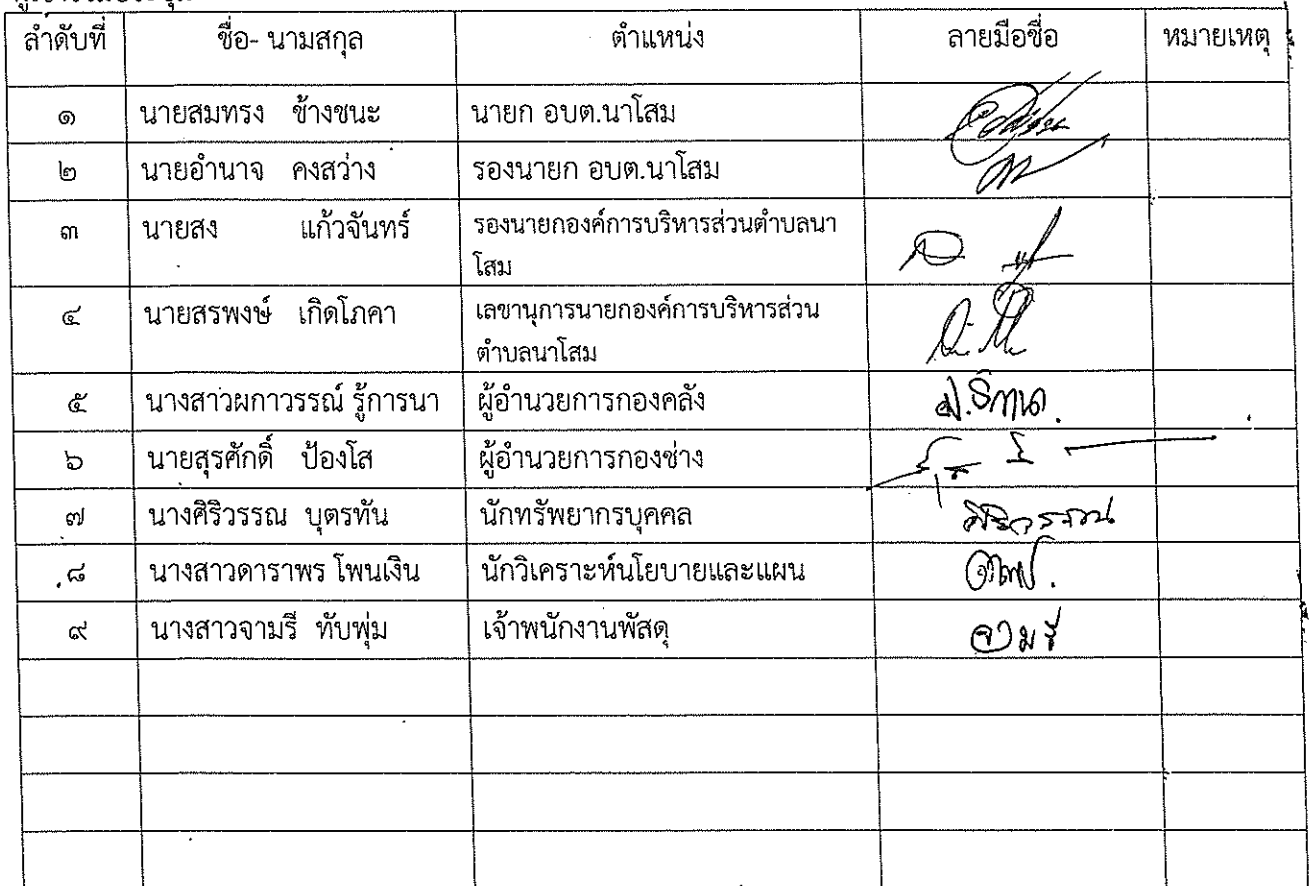 ลำดับที่ ชื่อ- นามสกุล ตำแหน่ง ลายมือชื่อ หมายเหตุ
๑ นายสมทรง ช้างชนะ นายก อบต.นาโสม
๒ นายอำนาจ คงสว่าง รองนายก อบต.นาโสม
๓ นายสง แก้วจันทร์ รองนายกองค์การบริหารส่วนตำบลนา
โสม
๔ นายสรพงษ์ เกิดโภคา เลขานุการนายกองค์การบริหารส่วน
ตำบลนาโสม
๕ นางสาวผกาวรรณ์ รู้การนา ผู้อำนวยการกองคลัง
๖ นายสุรศักดิ์ ป้องโส ผู้อำนวยการกองช่าง
๗ นางศิริวรรณ บุตรทัน นักทรัพยากรบุคคล ศิริวรรณ
๘ นางสาวดาราพร โพนเงิน นักวิเคราะห์นโยบายและแผน
๙ นางสาวจามรี ทับพุ่ม เจ้าพนักงานพัสดุ จามรี